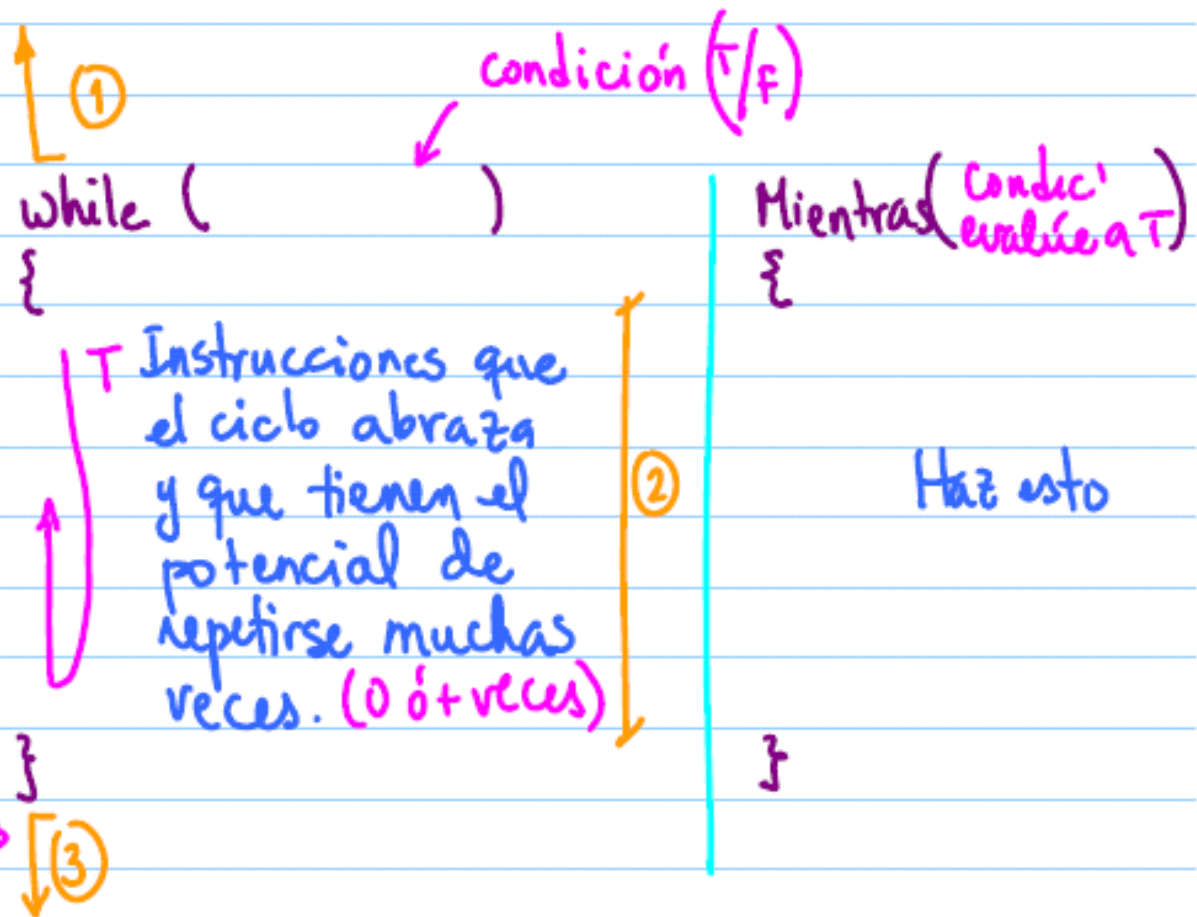 ①
condición (T/F)
while ( )
{
T Instrucciones que
el ciclo abraza
y que tienen el
potencial de
repetirse muchas
veces. (0 ó + veces)
②
}
③
Mientras (condic'
evalúe a T)
{
Haz esto
}